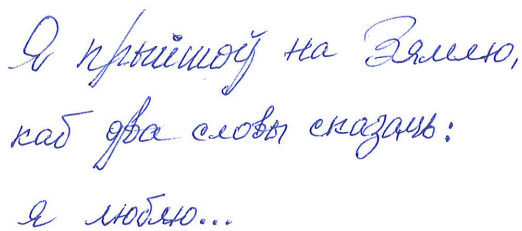 Я прыйшоў на Зямлю,
каб два словы сказаць:
я люблю...